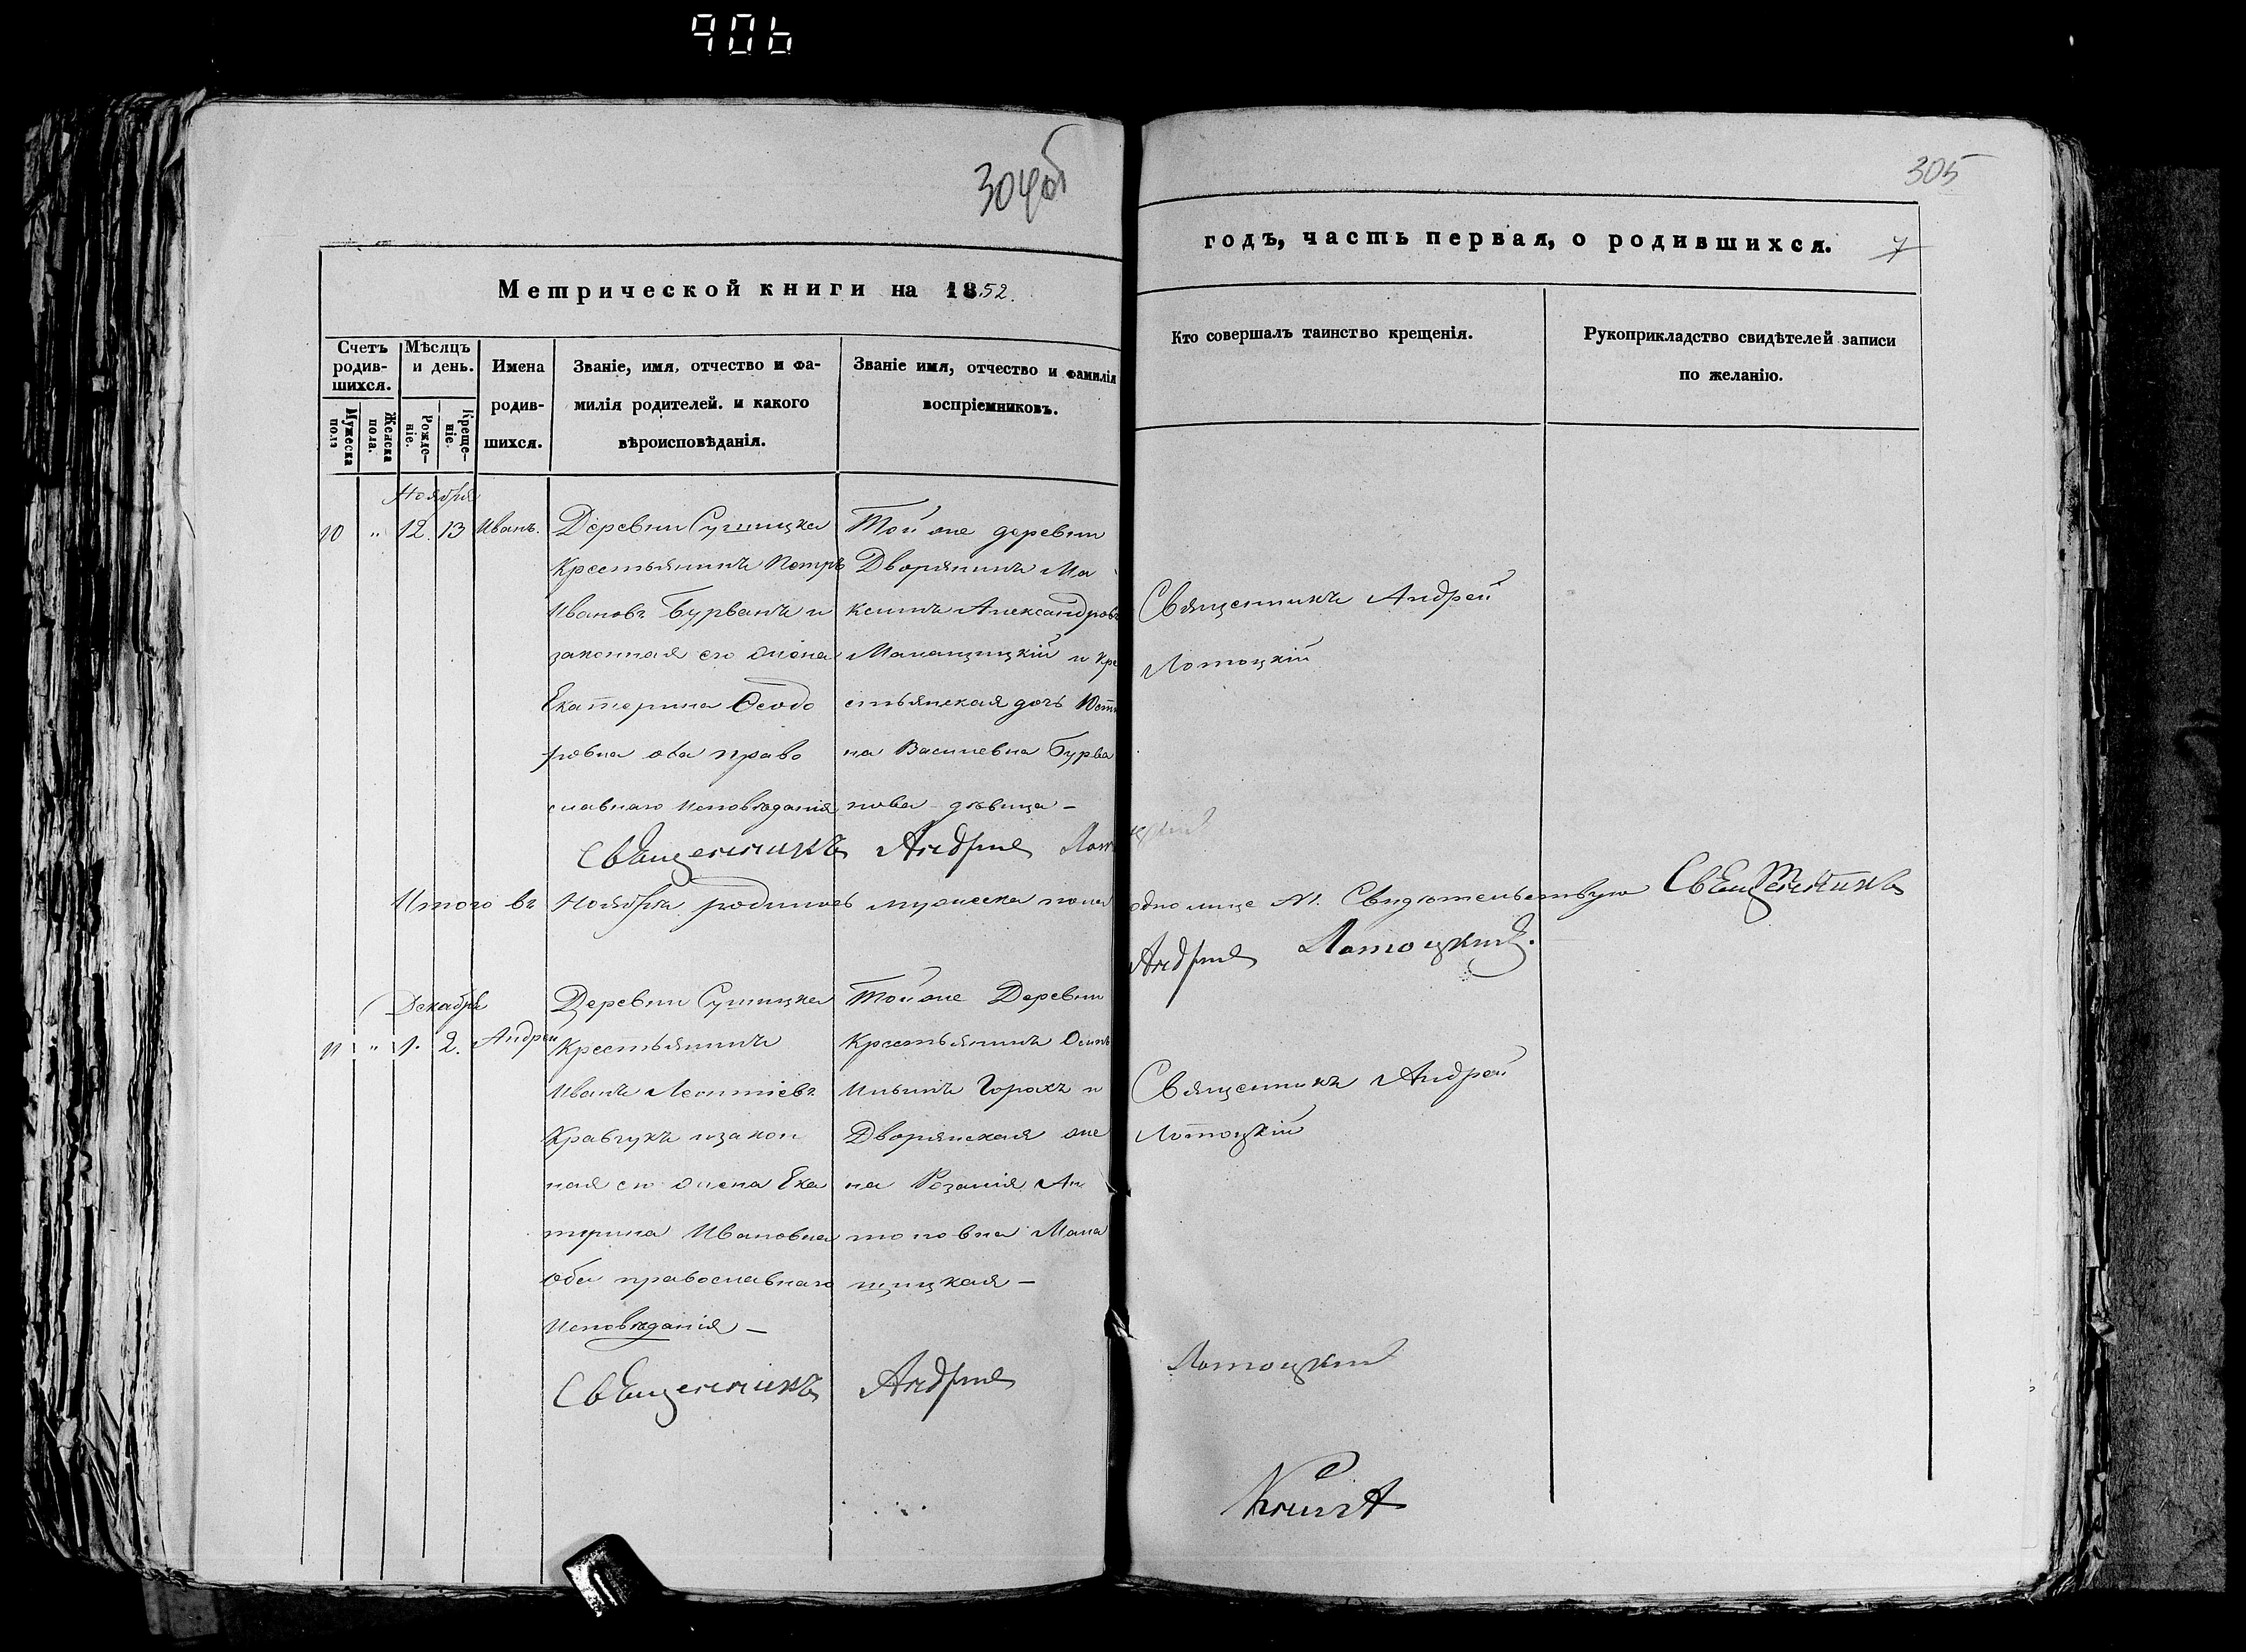 906
304об
305
Метрической книги на 1852.
годъ, часть первая, о родившихся. 7
Счетъ родив-шихся.
Мужеска пола
Женска пола.
Мѣсяцъ и день.
Рожде-ніе.
Креще-ніе.
Имена
родив-
шихся.
Званіе, имя, отчество и фа-
милія родителей. и какого
вѣроисповѣданія.
Званіе имя, отчество и фамилія
воспріемниковъ.
Кто совершалъ таинство крещенія.
Рукоприкладство свидѣтелей записи
по желанію.
Ноября
10 " 12. 13 Иванъ.
Деревни Сушицка
Крестьянинъ Петръ
Ивановъ Бурванъ и
законная его жена
Екатерина Ѳеодо
ровна оба право
славнаго исповѣданія
Той же деревни
Дворянинъ Ма
ксимъ Александровъ
и кре
стьянская дочь Юсти
на Василевна Бурва
нова дѣвица —
Священникъ Андрей
Лотоцкій
Священникъ Андрей Лотоцкий
Итого въ Ноябрѣ родилось мужеска пола одно лице №1. Свидѣтельствую Священникъ
Андрей Лотоцкий.
Декабрь
11 " 1. 2. Андрей
Деревни Сушицка
Крестьянинъ
Иванъ Леонтіевъ
Кравчукъ и закон
ная его жена Ека
тирина Ивановна
оба православнаго
исповѣданія —
Той же Деревни
Крестьянинъ Осипъ
Ильинъ Горохъ и
Дворянская же
на Розалія Ан
тоновна Мана
щицкая —
Священникъ Андрей
Лотоцкій
Священникъ Андрей Лотоцкий